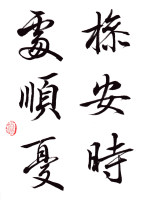 安時
處順憂